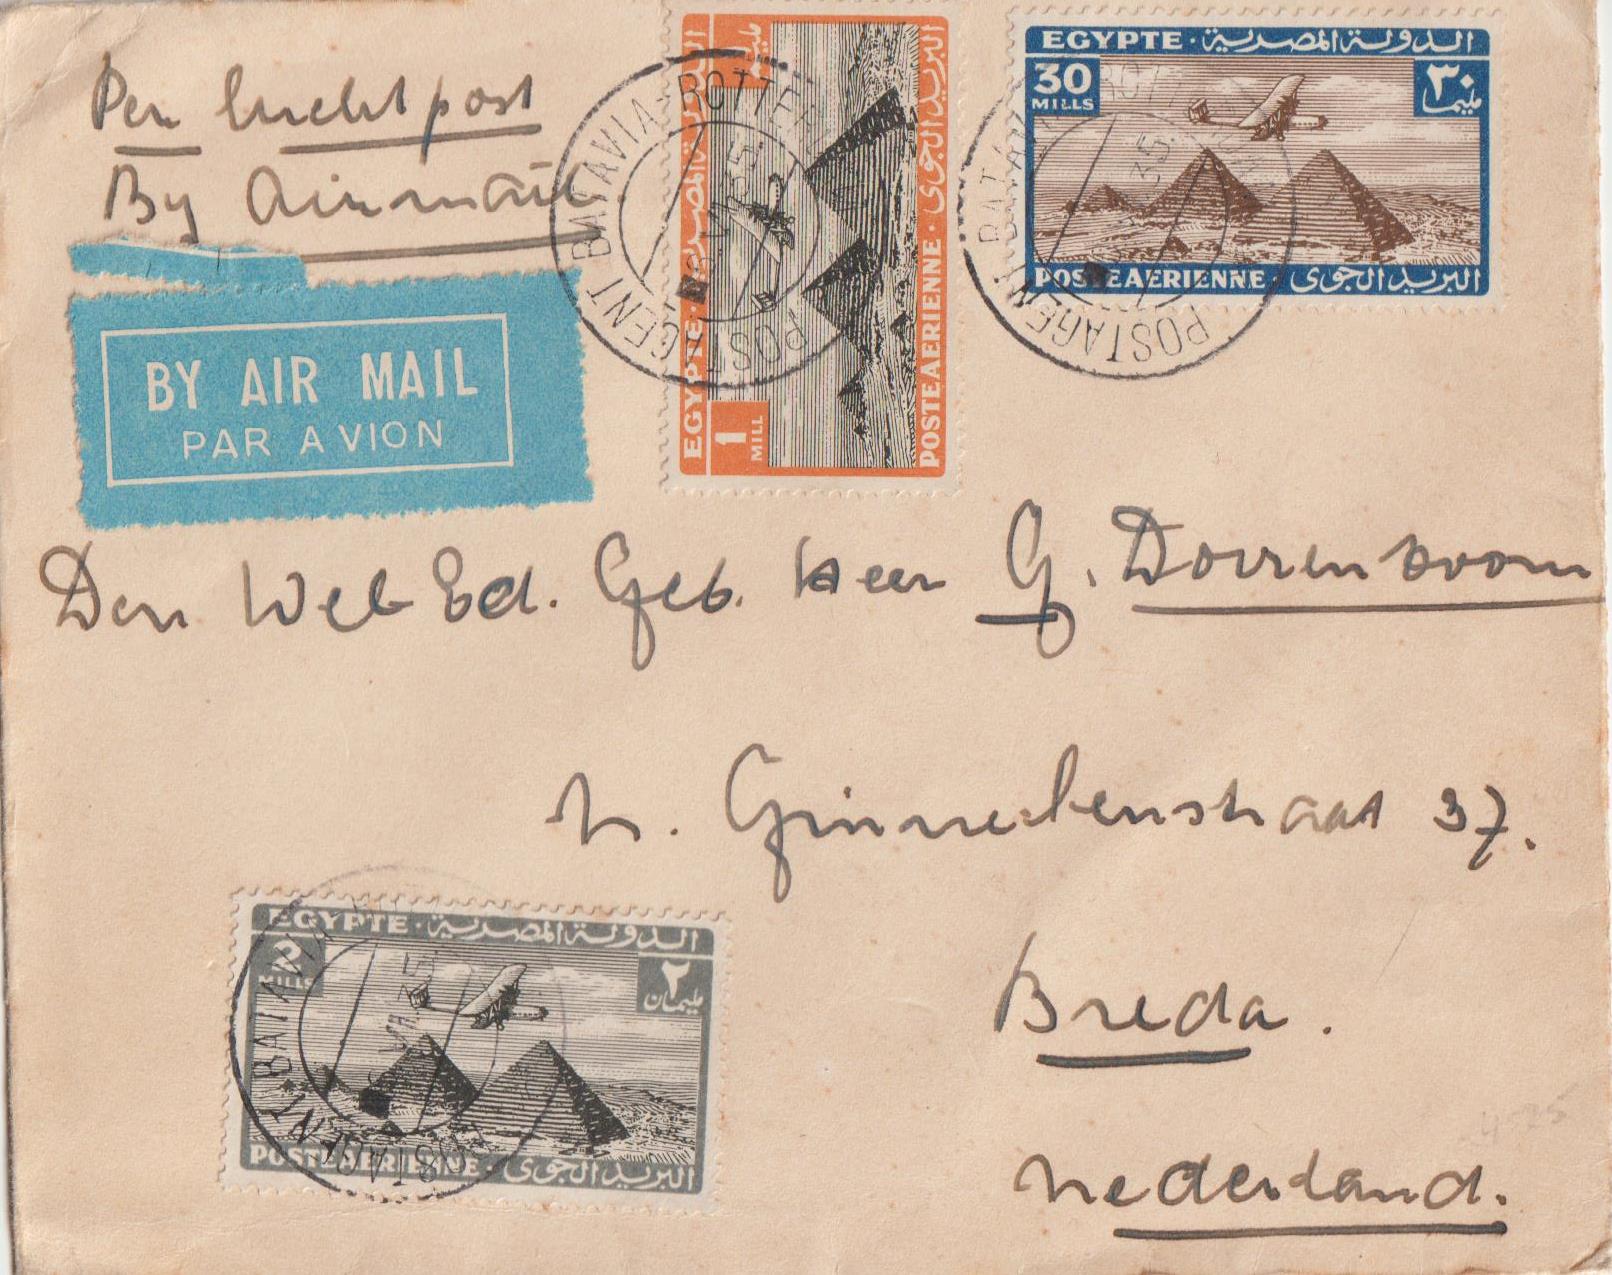 Per luchtpost
By Airmail
BY AIR MAIL
PAR AVION
EGYPTE · الدولة المصرية
1 MILL
مليم
POSTE AERIENNE · البريد الجوى
POSTAGENT BATAVIA-ROTTE
EGYPTE · الدولة المصرية
30 MILLS
٣٠ مليما
POSTE AERIENNE · البريد الجوى
POSTAGENT BATA
35
Den WelEd. Geb. Heer G. Dorrenboom
n. Ginnekenstraat 37.
Breda.
Nederland.
EGYPTE · الدولة المصرية
2 MILLS
٢ مليمان
POSTE AERIENNE · البريد الجوى
POSTAGENT BATAVIA
VII 35